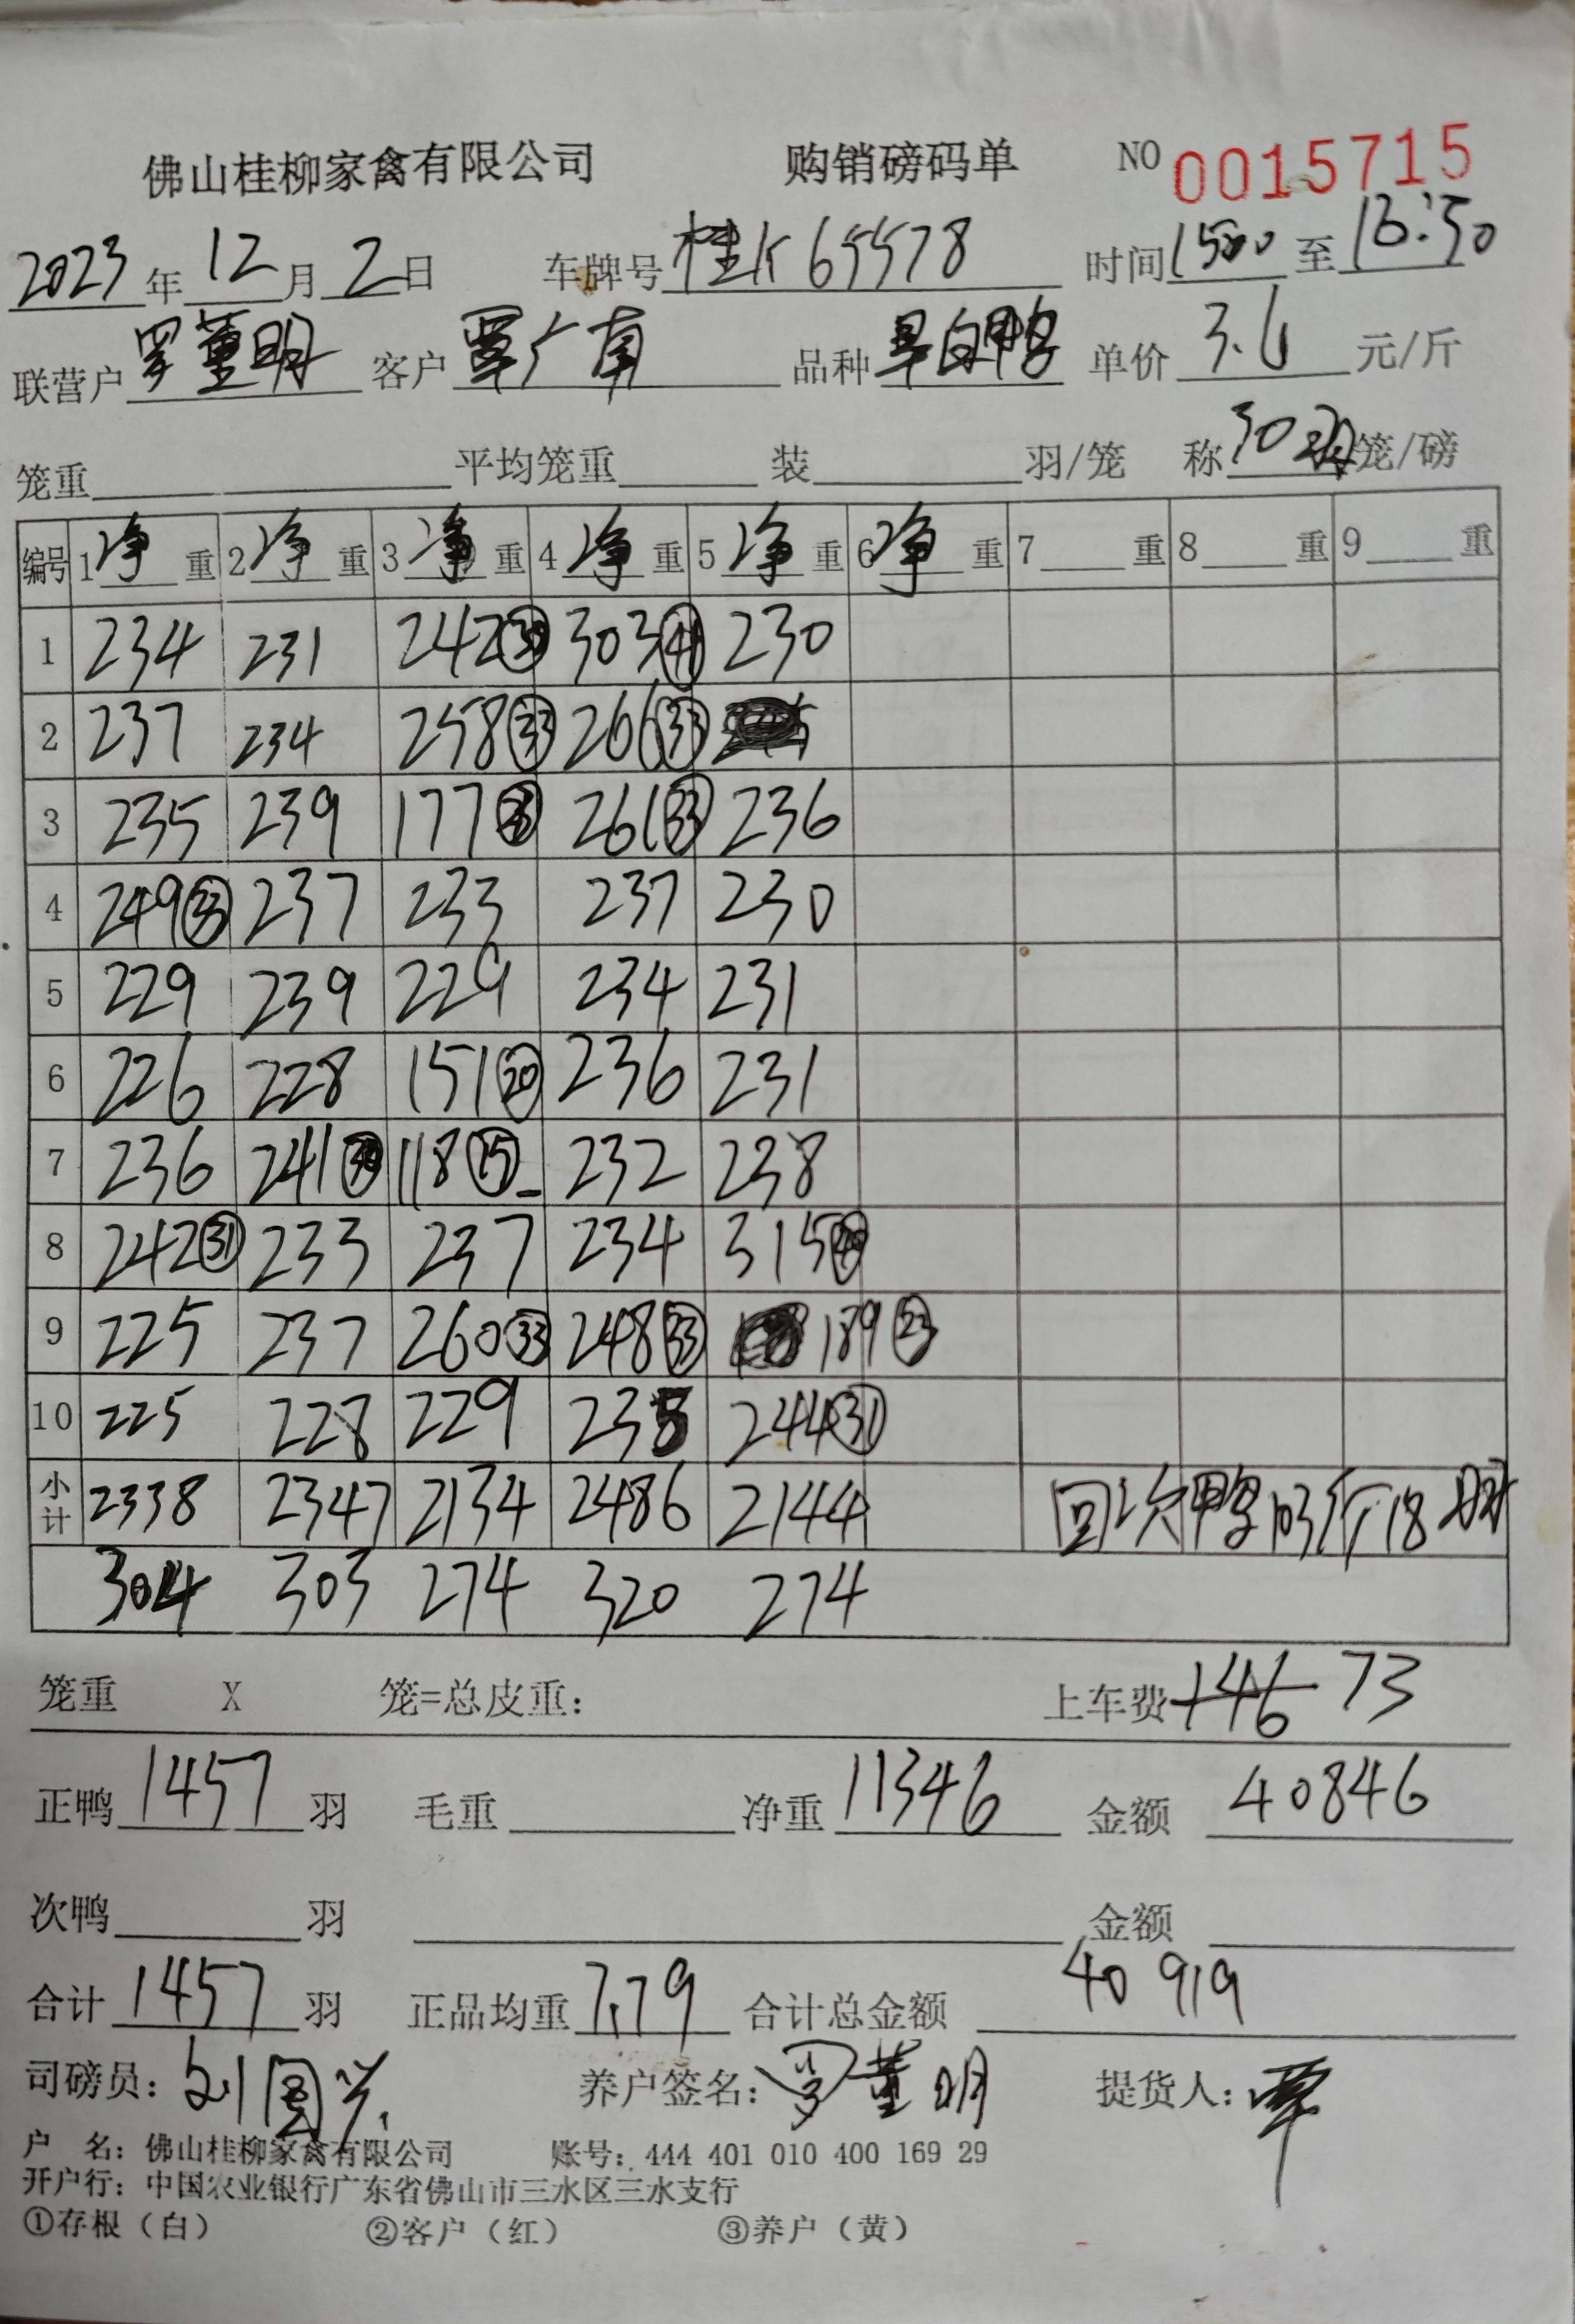 佛山桂柳家禽有限公司 购销磅码单 NO 0015715
2023年12月2日 车牌号 桂K65578 时间1500至16:50
联营户 罗董明 客户 覃广南 品种 旱白鸭 单价 3.6 元/斤
笼重 平均笼重 装 羽/笼 称 30羽 笼/磅
编号 1净重 2净重 3净重 4净重 5净重 6净重 7重 8重 9重
1 234 231 242 303 41 230
2 237 234 258 33 266 33
3 235 239 177 261 33 236
4 249 33 237 233 237 230
5 229 239 229 234 231
6 226 228 151 20 236 231
7 236 241 118 15 232 238
8 242 31 233 237 234 315 40
9 225 237 260 33 248 33 189 23
10 225 228 229 235 244 31
小计 2338 2347 2134 2486 2144 回次鸭 103斤 18
304 303 274 320 274
笼重 X 笼=总皮重: 上车费 146 73
正鸭 1457 羽 毛重 净重 11346 金额 40846
次鸭 羽 金额
合计 1457 羽 正品均重 7.79 合计总金额 40919
司磅员: 刘国兴 养户签名: 罗董明 提货人: 覃
户 名: 佛山桂柳家禽有限公司 账号: 444 401 010 400 169 29
开户行: 中国农业银行广东省佛山市三水区三水支行
①存根（白） ②客户（红） ③养户（黄）